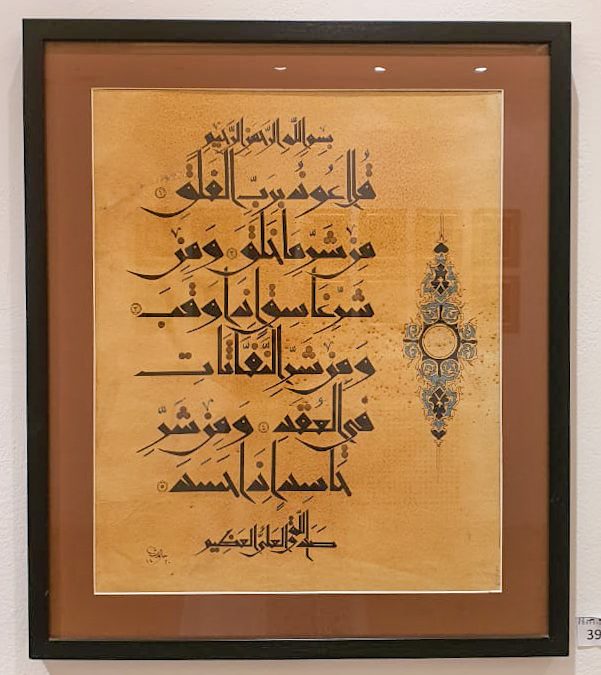 بسم الله الرحمن الرحيم
قُل أَعُوذُ بِرَبِّ الفَلَقِ ١
مِن شَرِّ مَا خَلَقَ ٢ وَمِن
شَرِّ غَاسِقٍ إِذَا وَقَبَ ٣
وَمِن شَرِّ النَّفَّاثَاتِ
فِي العُقَدِ ٤ وَمِن شَرِّ
حَاسِدٍ إِذَا حَسَدَ ٥
صدق الله العلي العظيم
39